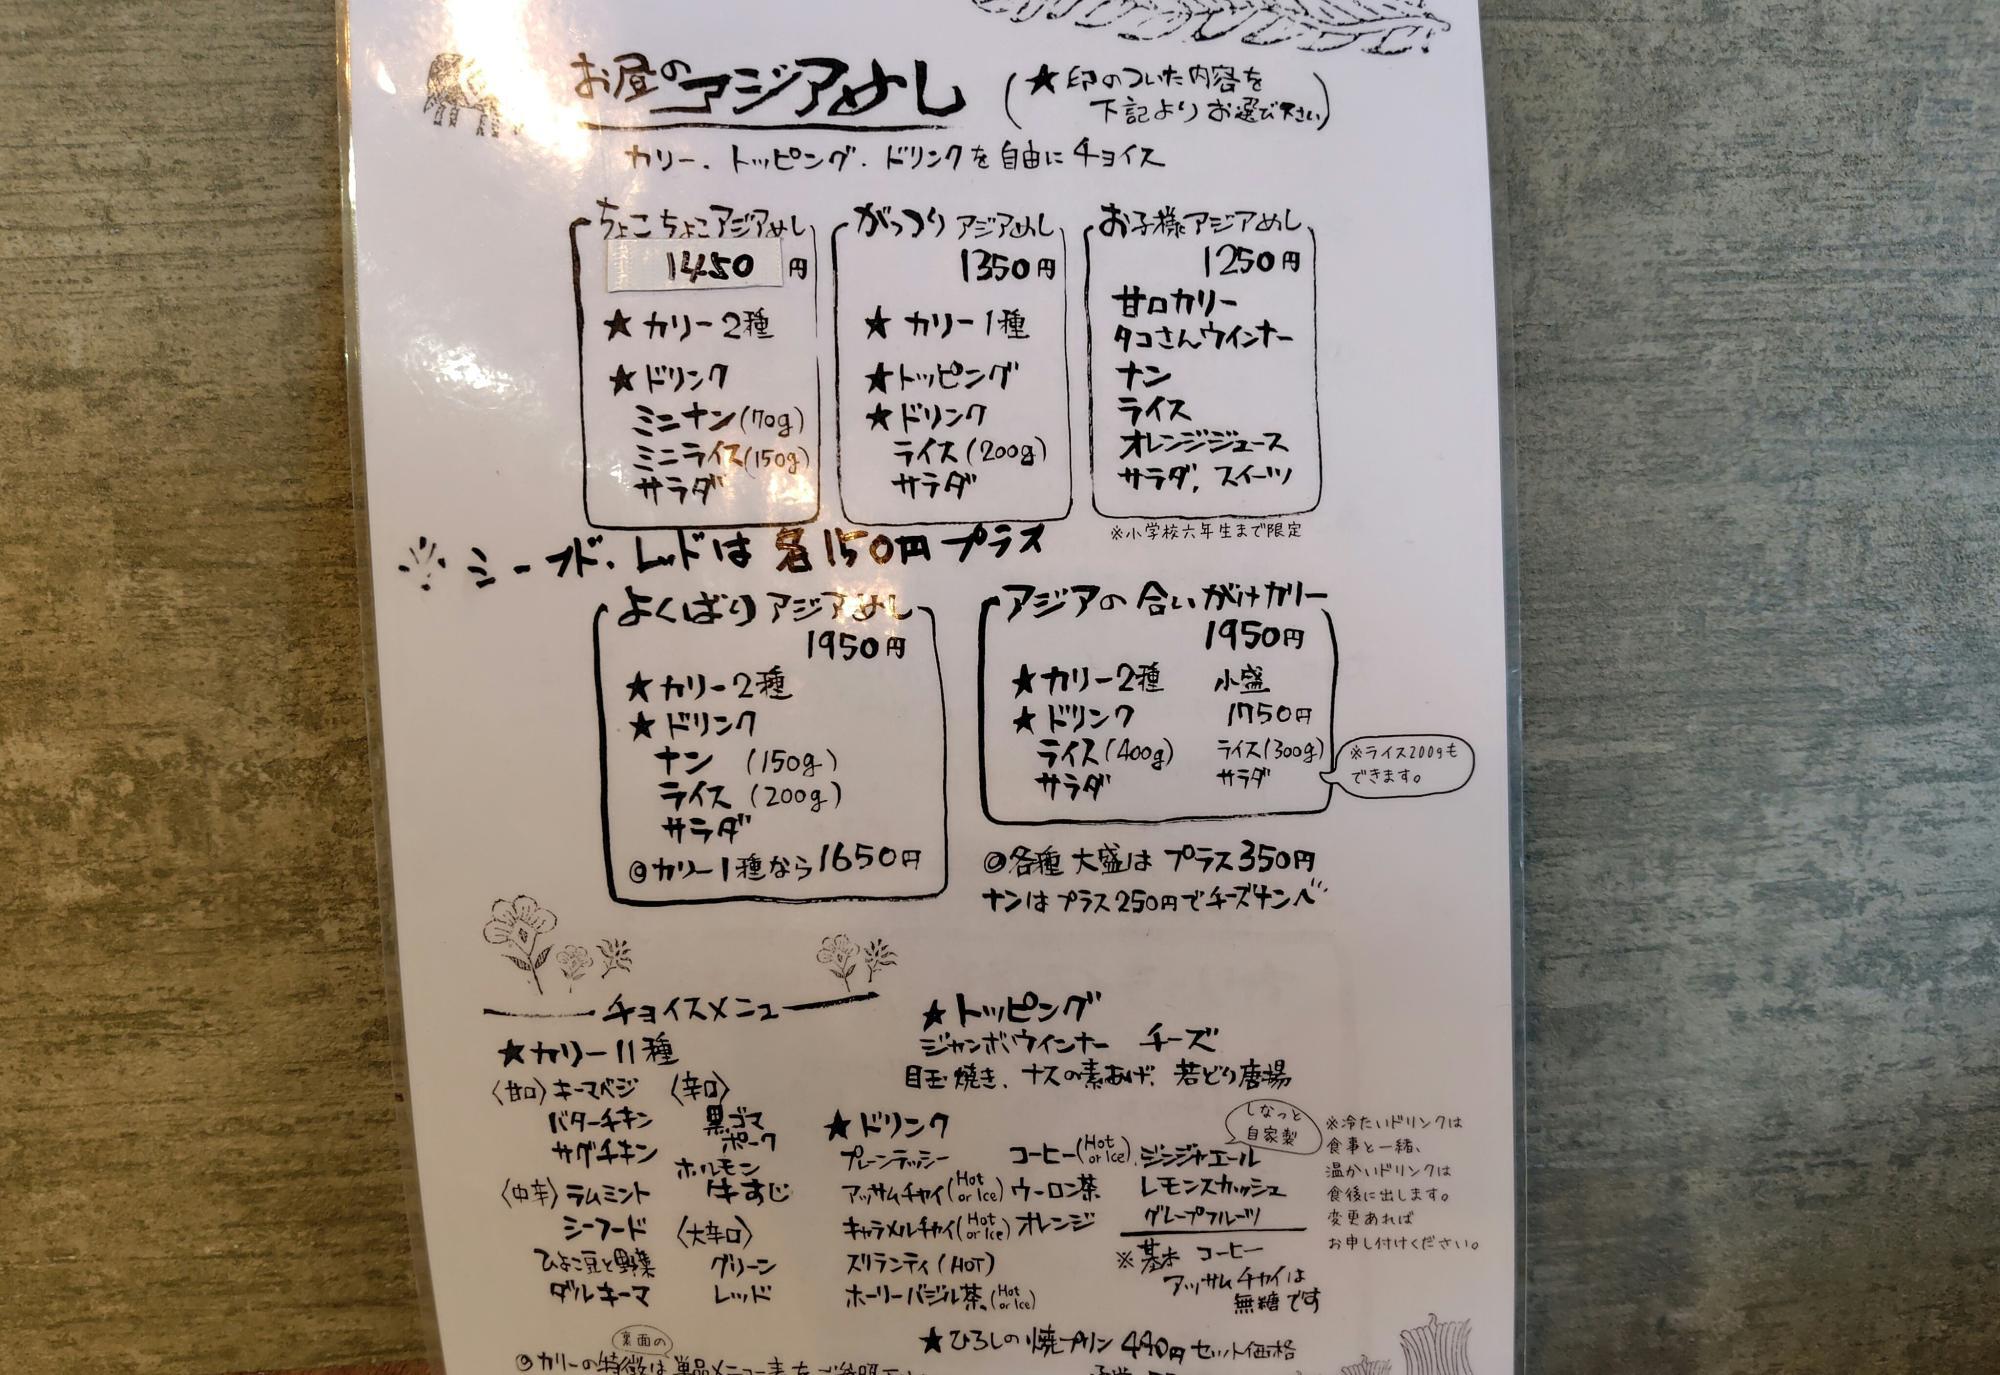 お昼のアジアめし
(★印のついた内容を
下記よりお選び下さい)
カリー、トッピング、ドリンクを自由にチョイス
ちょこちょこアジアめし
1450円
★カリー2種
★ドリンク
ミニナン(70g)
ミニライス(150g)
サラダ
がっつりアジアめし
1350円
★カリー1種
★トッピング
★ドリンク
ライス(200g)
サラダ
お子様アジアめし
1250円
甘口カリー
タコさんウインナー
ナン
ライス
オレンジジュース
サラダ、スイーツ
※小学校六年生まで限定
シーフード、レッドは各150円プラス
よくばりアジアめし
1950円
★カリー2種
★ドリンク
ナン (150g)
ライス (200g)
サラダ
◎カリー1種なら1650円
アジアの合いがけカリー
1950円
★カリー2種
★ドリンク
ライス(400g)
サラダ
小盛
1750円
ライス(300g)
サラダ
※ライス200gも
できます。
◎各種大盛はプラス350円
ナンはプラス250円でチーズナンへ
チョイスメニュー
★カリー11種
〈甘口〉キーマベジ
バターチキン
サグチキン
〈中辛〉ラムミント
シーフード
ひよこ豆と野菜
ダルキーマ
〈辛口〉
黒ゴマ
ポーク
ホルモン
牛すじ
〈大辛口〉
グリーン
レッド
★トッピング
ジャンボウインナー チーズ
目玉焼き、ナスの素あげ、若どり唐揚
★ドリンク
プレーンラッシー
アッサムチャイ(Hot or Ice)
キャラメルチャイ(Hot or Ice)
ズリランティ(HOT)
ホーリーバジル茶(Hot or Ice)
コーヒー(Hot or Ice)、
ウーロン茶
オレンジ
しなっと
自家製
ジンジャエール
レモンスカッシュ
グレープフルーツ
※基本 コーヒー
アッサムチャイは
無糖です
※冷たいドリンクは
食事と一緒、
温かいドリンクは
食後に出します。
変更あれば
お申し付けください。
★ひろしの焼プリン 440円 セット価格
裏面の
◎カリーの特徴は単品メニュー表をご参照下さい